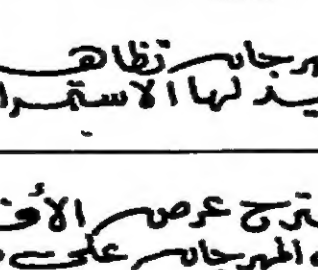 مهرجان تظاهـ
يد لها الاستمرا
ترح عرض الأفـ
المهرجان على